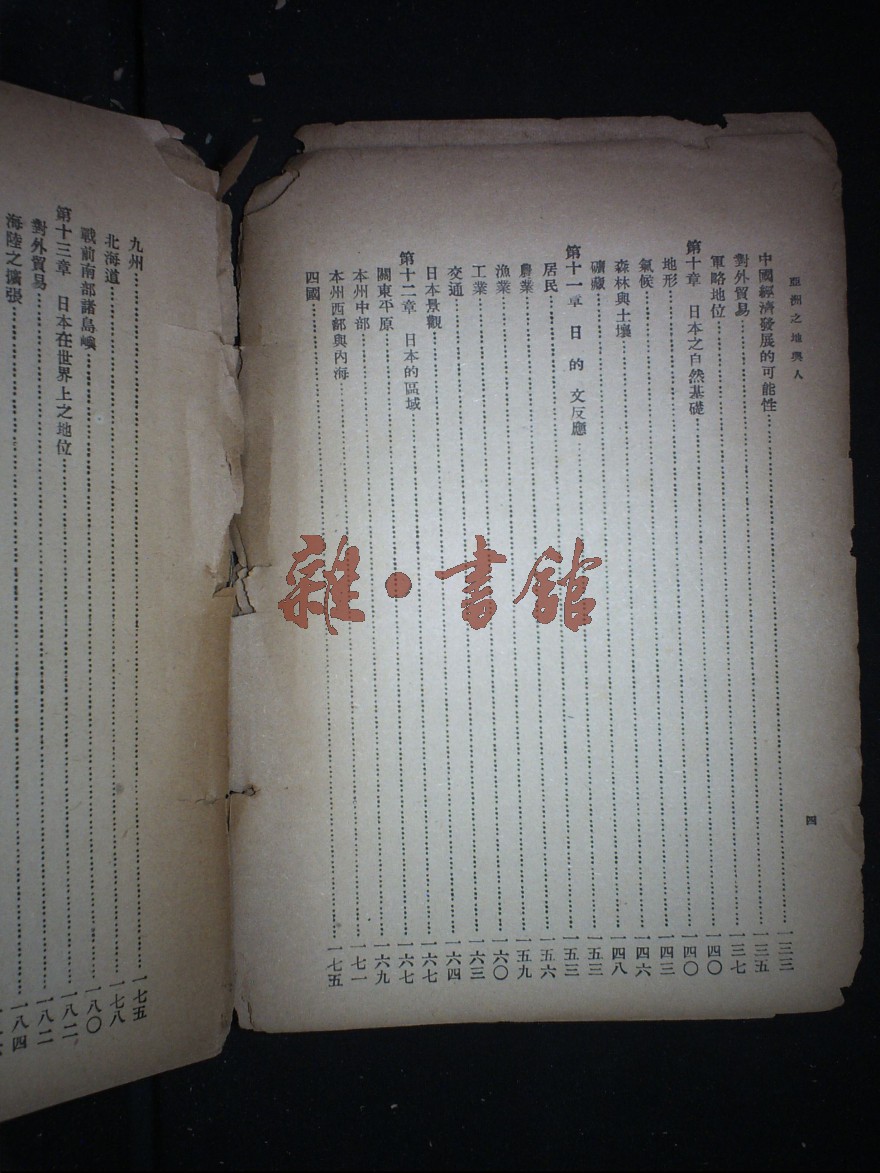 亞洲之地與人 四
中國經濟發展的可能性 一三三
對外貿易 一三五
軍略地位 一三七
第十章 日本之自然基礎 一四〇
地形 一四〇
氣候 一四三
森林與土壤 一四六
礦藏 一四八
第十一章 日 的 文反應 一五三
居民 一五三
農業 一五六
漁業 一五九
工業 一六〇
交通 一六三
日本景觀 一六四
第十二章 日本的區域 一六七
關東平原 一六七
本州中部 一六九
本州西部與內海 一七一
四國 一七五
九州 一七五
北海道 一七八
戰前南部諸島嶼 一八〇
第十三章 日本在世界上之地位 一八二
對外貿易 一八二
海陸之擴張 一八四
雜·書館